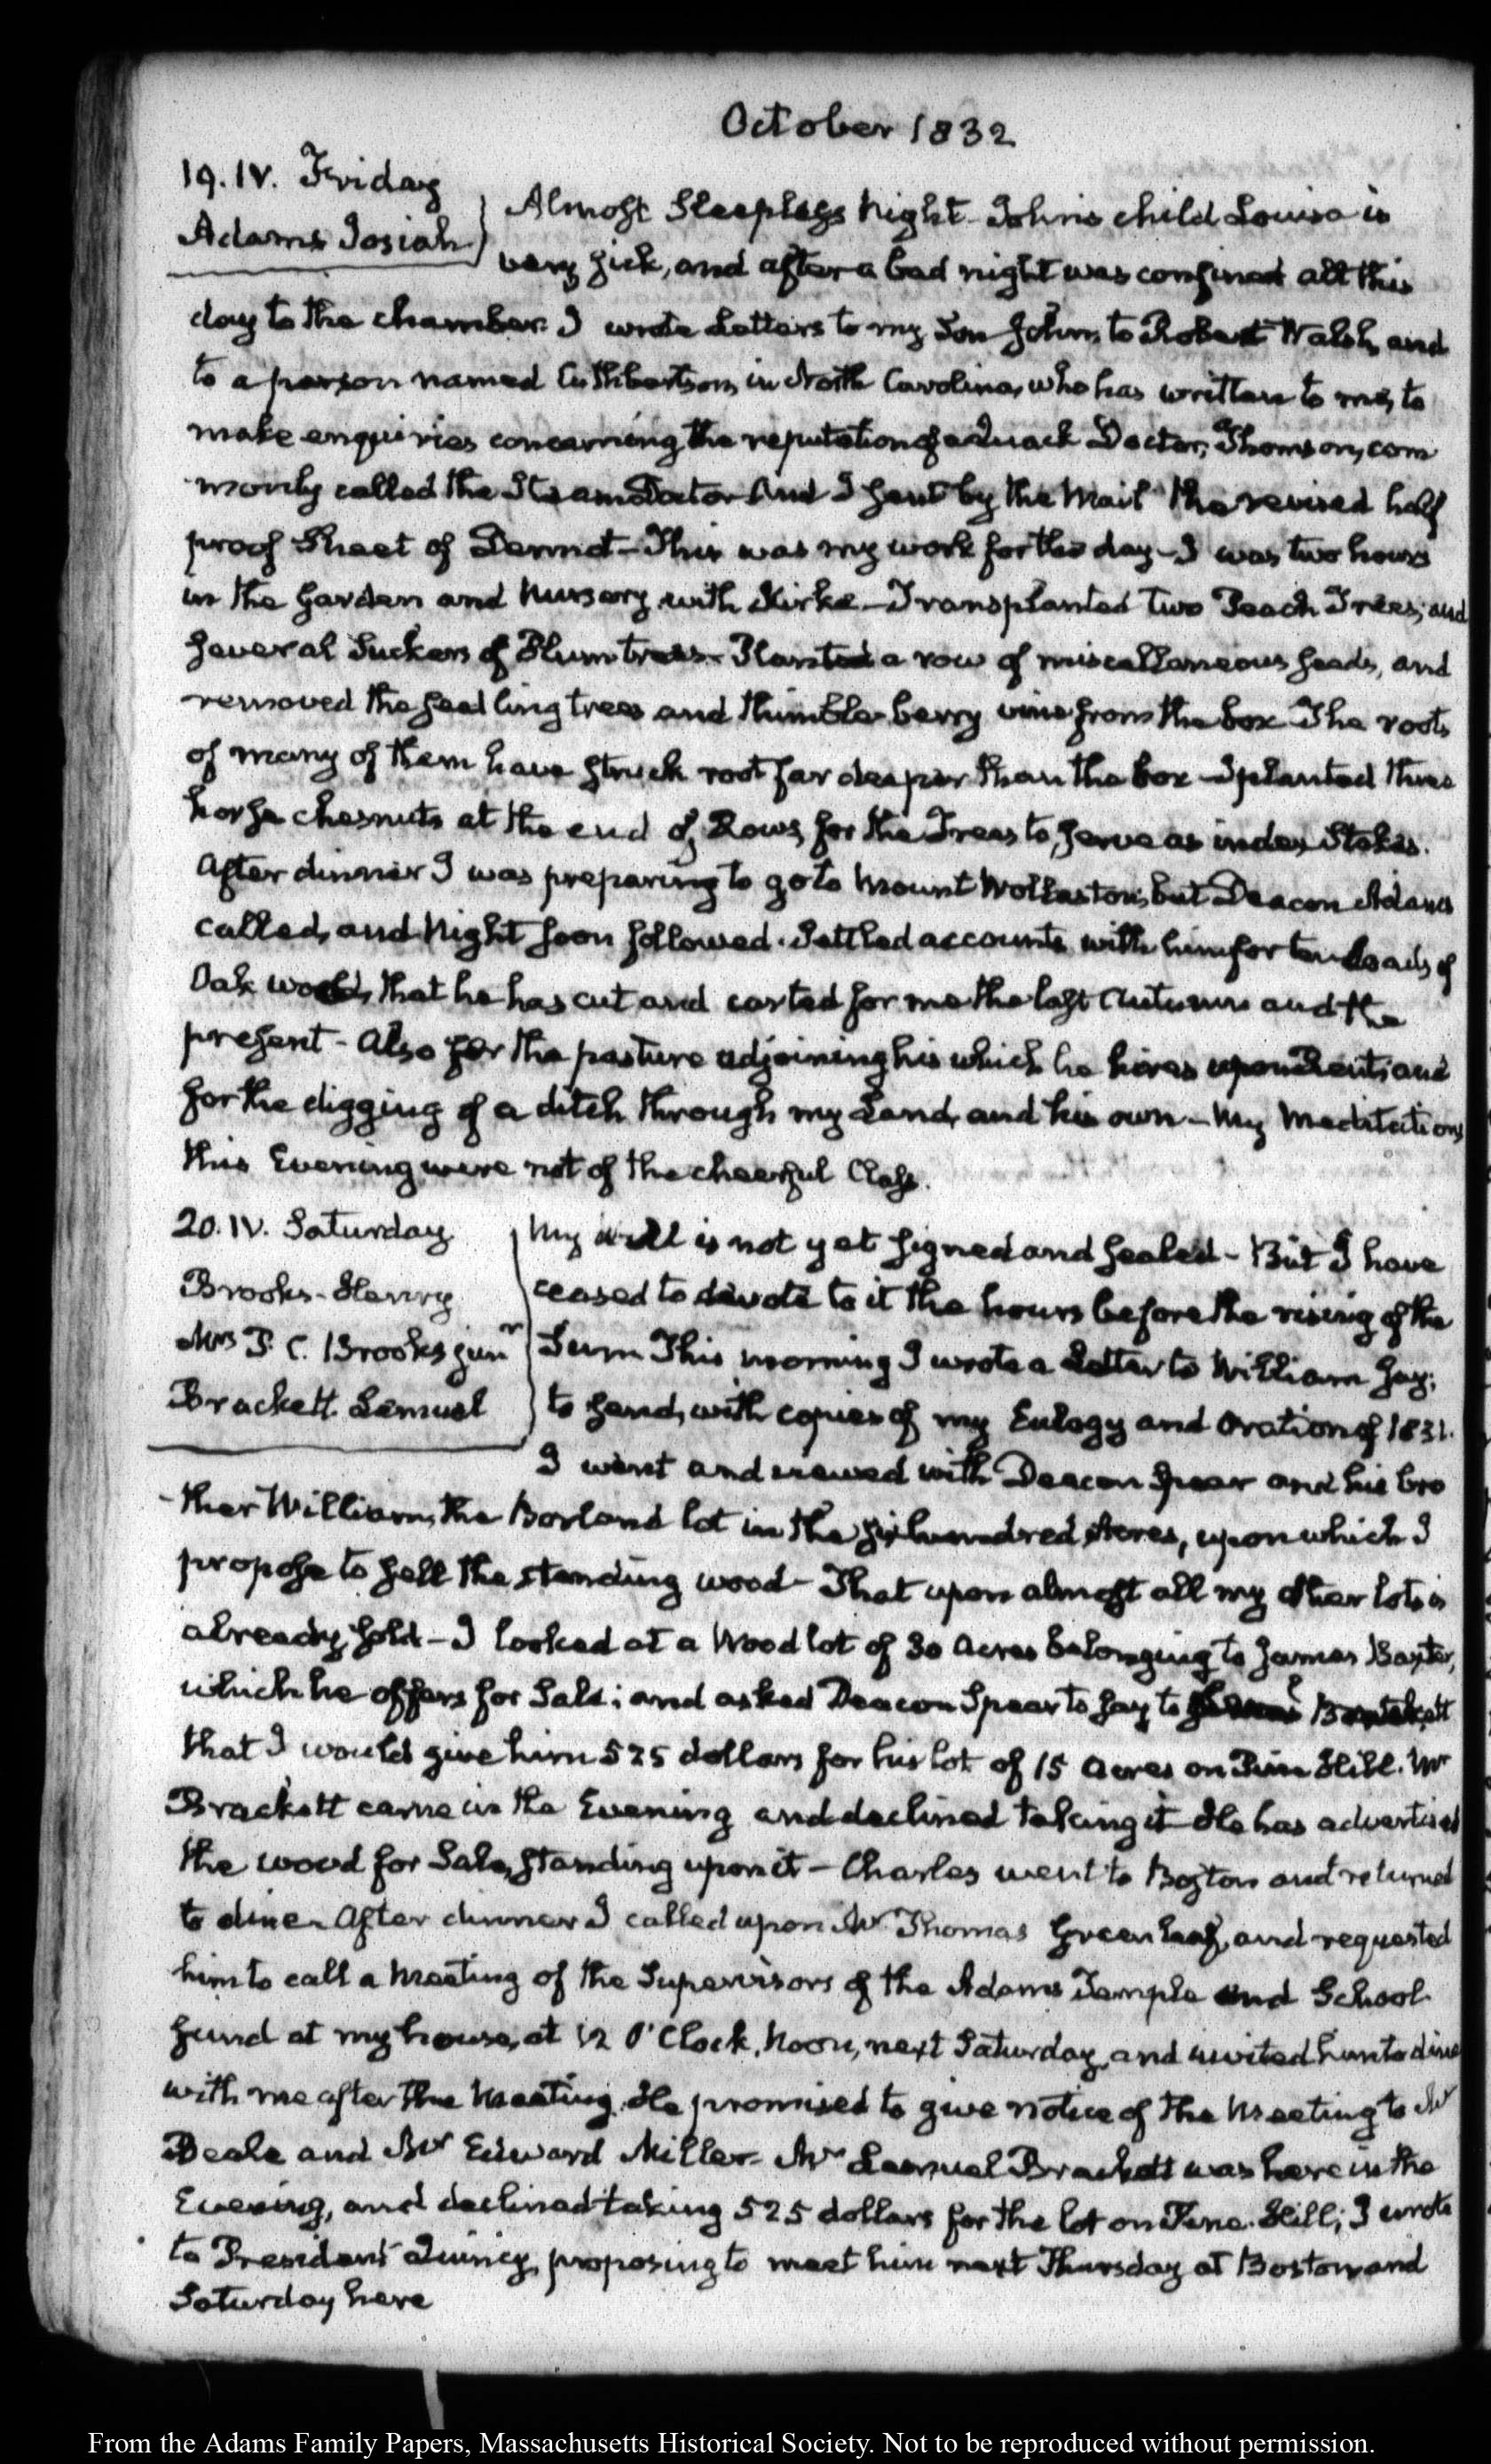 October 1832
19. IV. Friday
Adams Josiah
Almost Sleepless Night. John's child Louisa is
very sick, and after a bad night was confined all this
day to the chamber. I wrote Letters to my Son John, to Robert Walsh, and
to a person named Cuthbertson, in North Carolina, who has written to me, to
make enquiries concerning the reputation of a Quack Doctor, Thomson, com
monly called the Steam Doctor. And I sent by the Mail the revised half
proof Sheet of Dermot - This was my work for the day - I was two hours
in the Garden and Nursery with Kirke - Transplanted two Peach Trees, and
several Suckers of Plum trees - Planted a row of miscellaneous seeds, and
removed the seedling trees and thimble-berry vine from the box. The roots
of many of them have struck root far deeper than the box - I planted three
horse chesnuts at the end of Rows, for the Trees to serve as index Stakes.
After dinner I was preparing to go to Mount Wollaston, but Deacon Adams
called, and Night soon followed. Settled accounts with him for ten loads of
Oak wood, that he has cut and carted for me the last Autumn and the
present - Also for the pasture adjoining his which he hires upon Rent, and
for the digging of a ditch through my Land, and his own - My Meditations
this Evening were not of the cheerful Class.
20. IV. Saturday
Brooks - Henry
Mrs P. C. Brooks junr
Brackett. Lemuel
My will is not yet signed and sealed - But I have
ceased to devote to it the hours before the rising of the
Sun. This morning I wrote a Letter to William Jay;
to send, with copies of my Eulogy and Oration of 1831.
I went and viewed with Deacon Spear and his bro
ther William, the Borland lot in the six hundred Acres, upon which I
propose to sell the standing wood - That upon almost all my other lots is
already sold - I looked at a Wood lot of 30 Acres belonging to James Baxter,
which he offers for Sale; and asked Deacon Spear to say to Brackett
that I would give him 525 dollars for his lot of 15 Acres on Pine Hill. Mr
Brackett came in the Evening and declined taking it. He has advertised
the wood for Sale, standing upon it - Charles went to Boston and returned
to dine. After dinner I called upon Mr Thomas Greenleaf, and requested
him to call a Meeting of the Supervisors of the Adams Temple and School
fund at my house, at 12 O'Clock, Noon, next Saturday, and invited him to dine
with me after the Meeting. He promised to give notice of the Meeting to Mr
Beale and Mr Edward Miller. Mr Lemuel Brackett was here in the
Evening, and declined taking 525 dollars for the lot on Pine Hill; I wrote
to President Quincy, proposing to meet him next Thursday at Boston, and
Saturday here
From the Adams Family Papers, Massachusetts Historical Society. Not to be reproduced without permission.